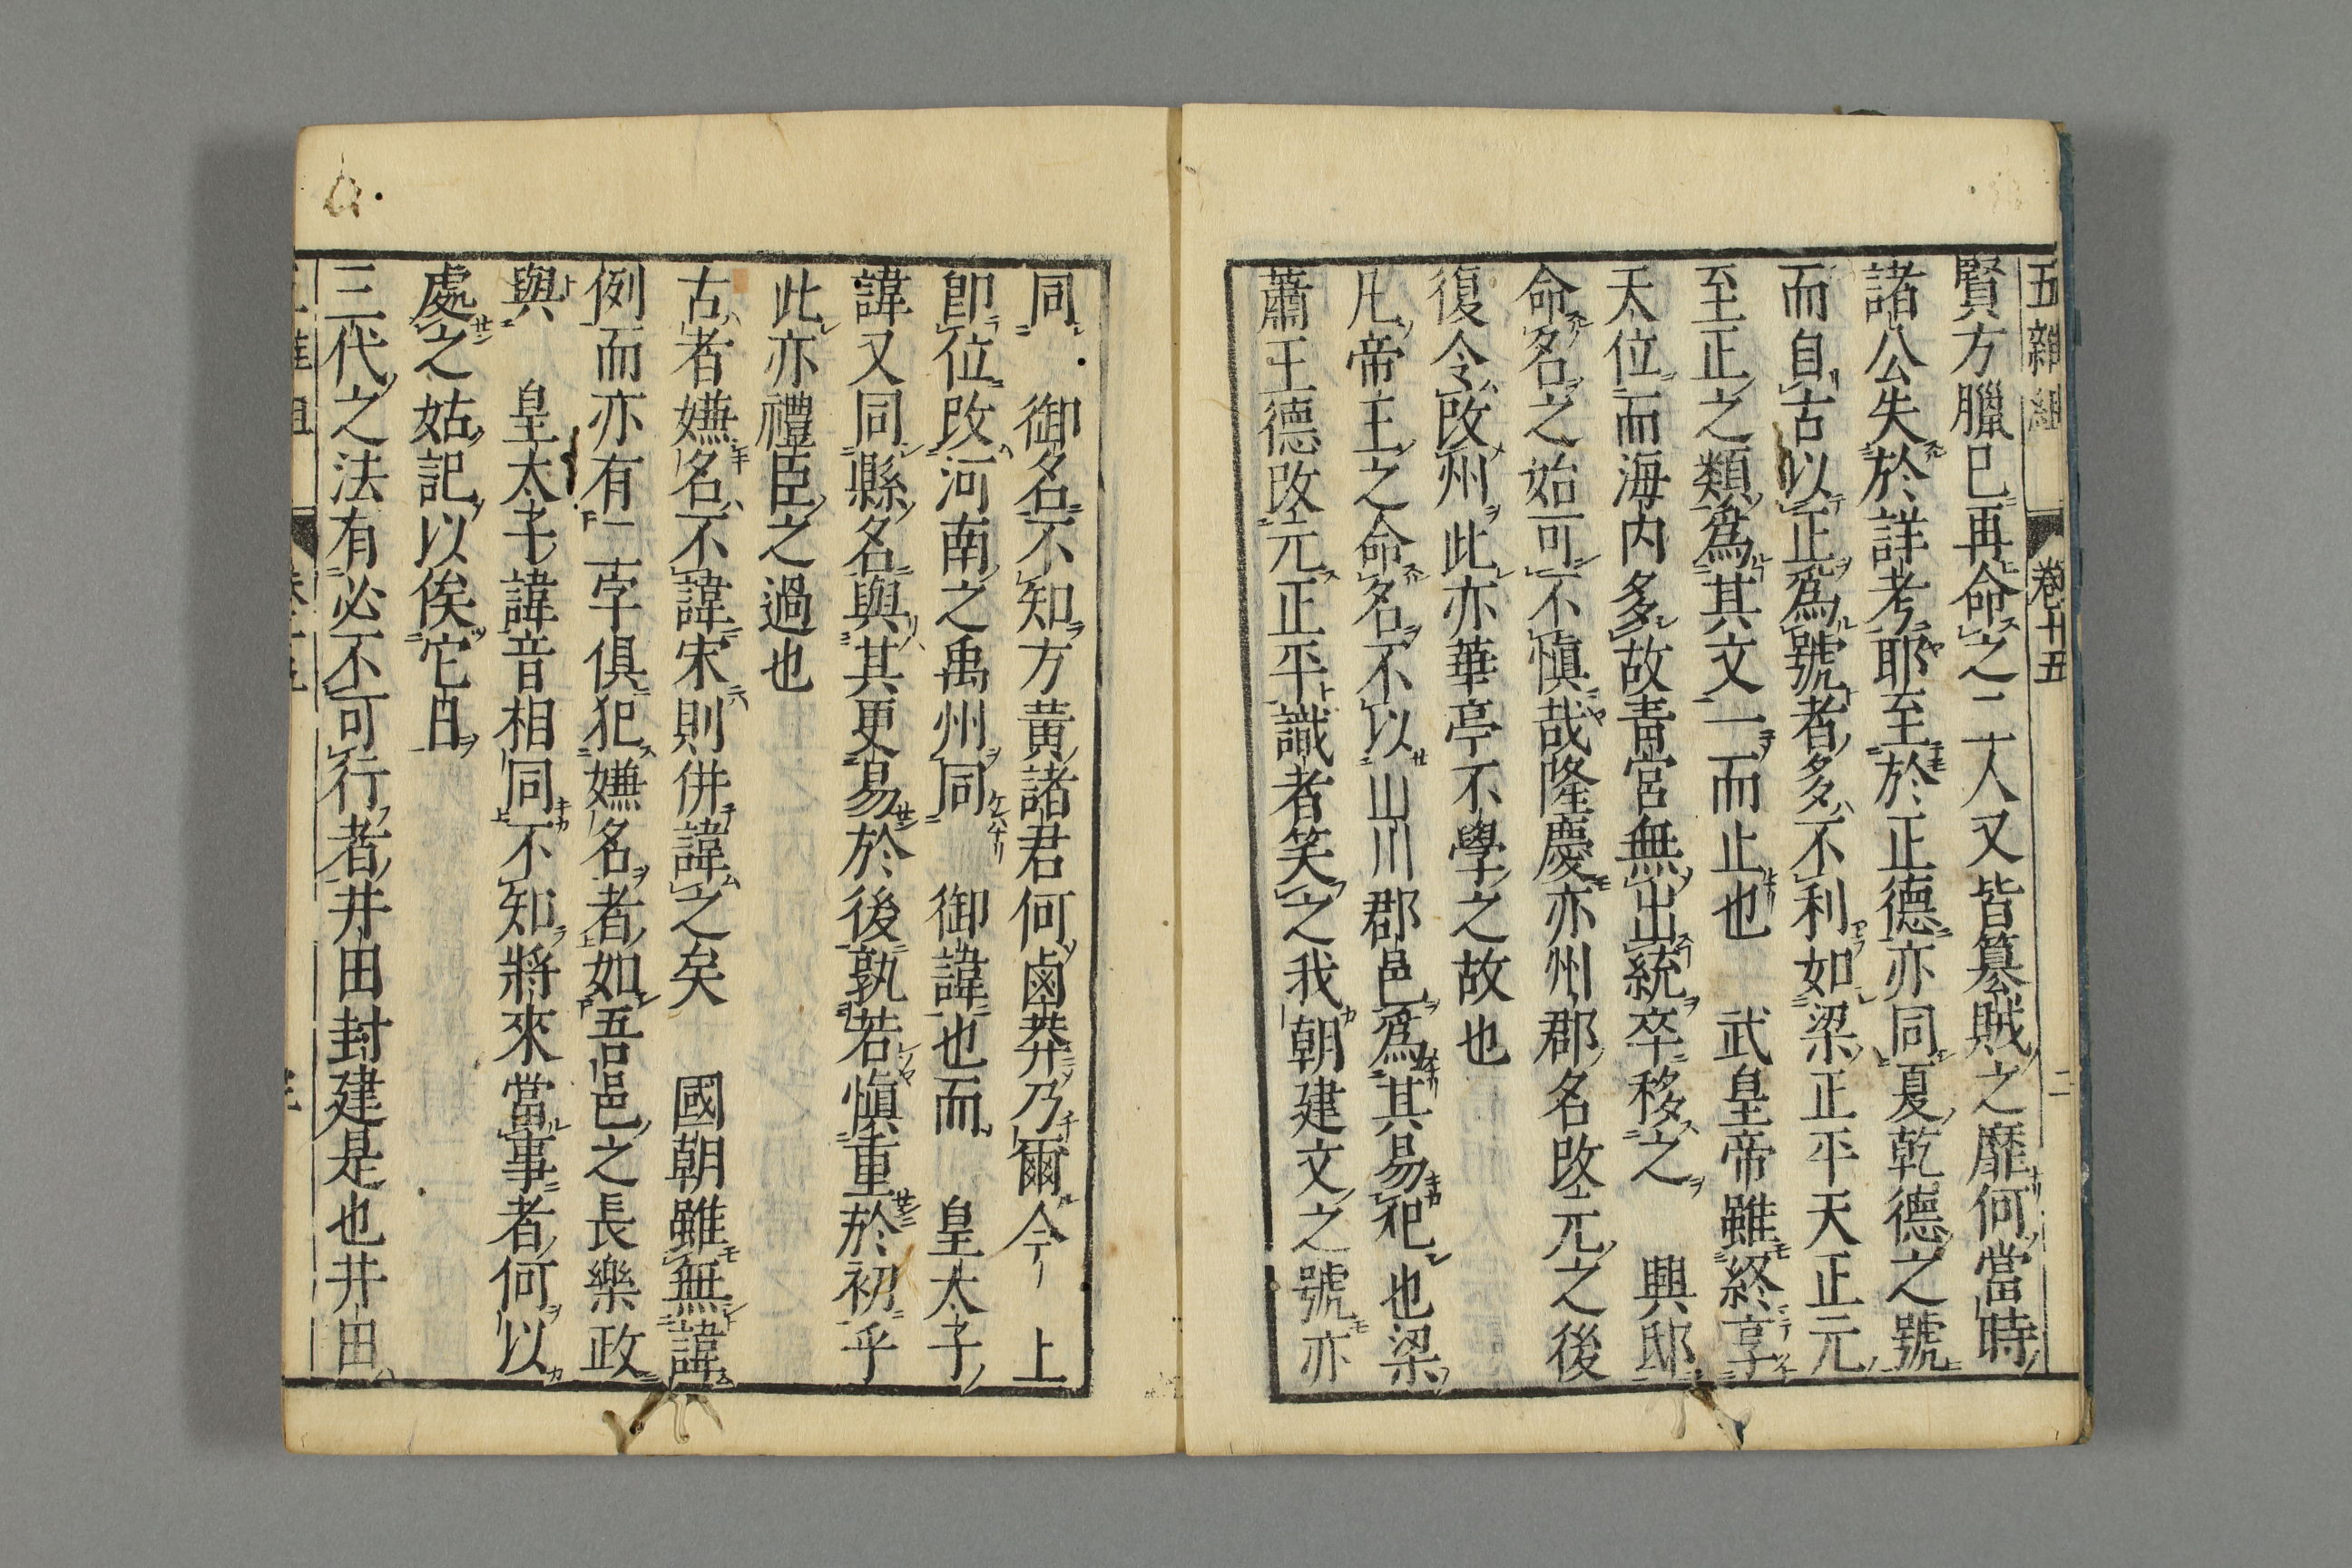 五雜組 卷十五 二
賢方臘已再命之二人又皆篡賊之靡何當時
諸公失於詳考耶至於正德亦同夏乾德之號
而自古以正爲號者多不利如梁正平天正元
至正之類爲其文一而止也　武皇帝雖終享
天位而海内多故青宮無出統卒移之　興邸
命名之始可不愼哉隆慶亦州郡名改元之後
復令改州此亦華亭不學之故也
凡帝王之命名不以山川郡邑爲其易犯也梁
蕭正德改元正平識者笑之我朝建文之號亦
同　御名不知方黃諸君何鹵莽乃爾今　上
卽位改河南之禹州同　御諱也而　皇太子
諱又同縣名與其更易於後孰若愼重於初乎
此亦禮臣之過也
古者嫌名不諱宋則併諱之矣　國朝雖無諱
例而亦有一字俱犯嫌名者如吾邑之長樂政
與　皇太子諱音相同不知將來當事者何以
處之姑記以俟它日
三代之法有必不可行者井田封建是也井田